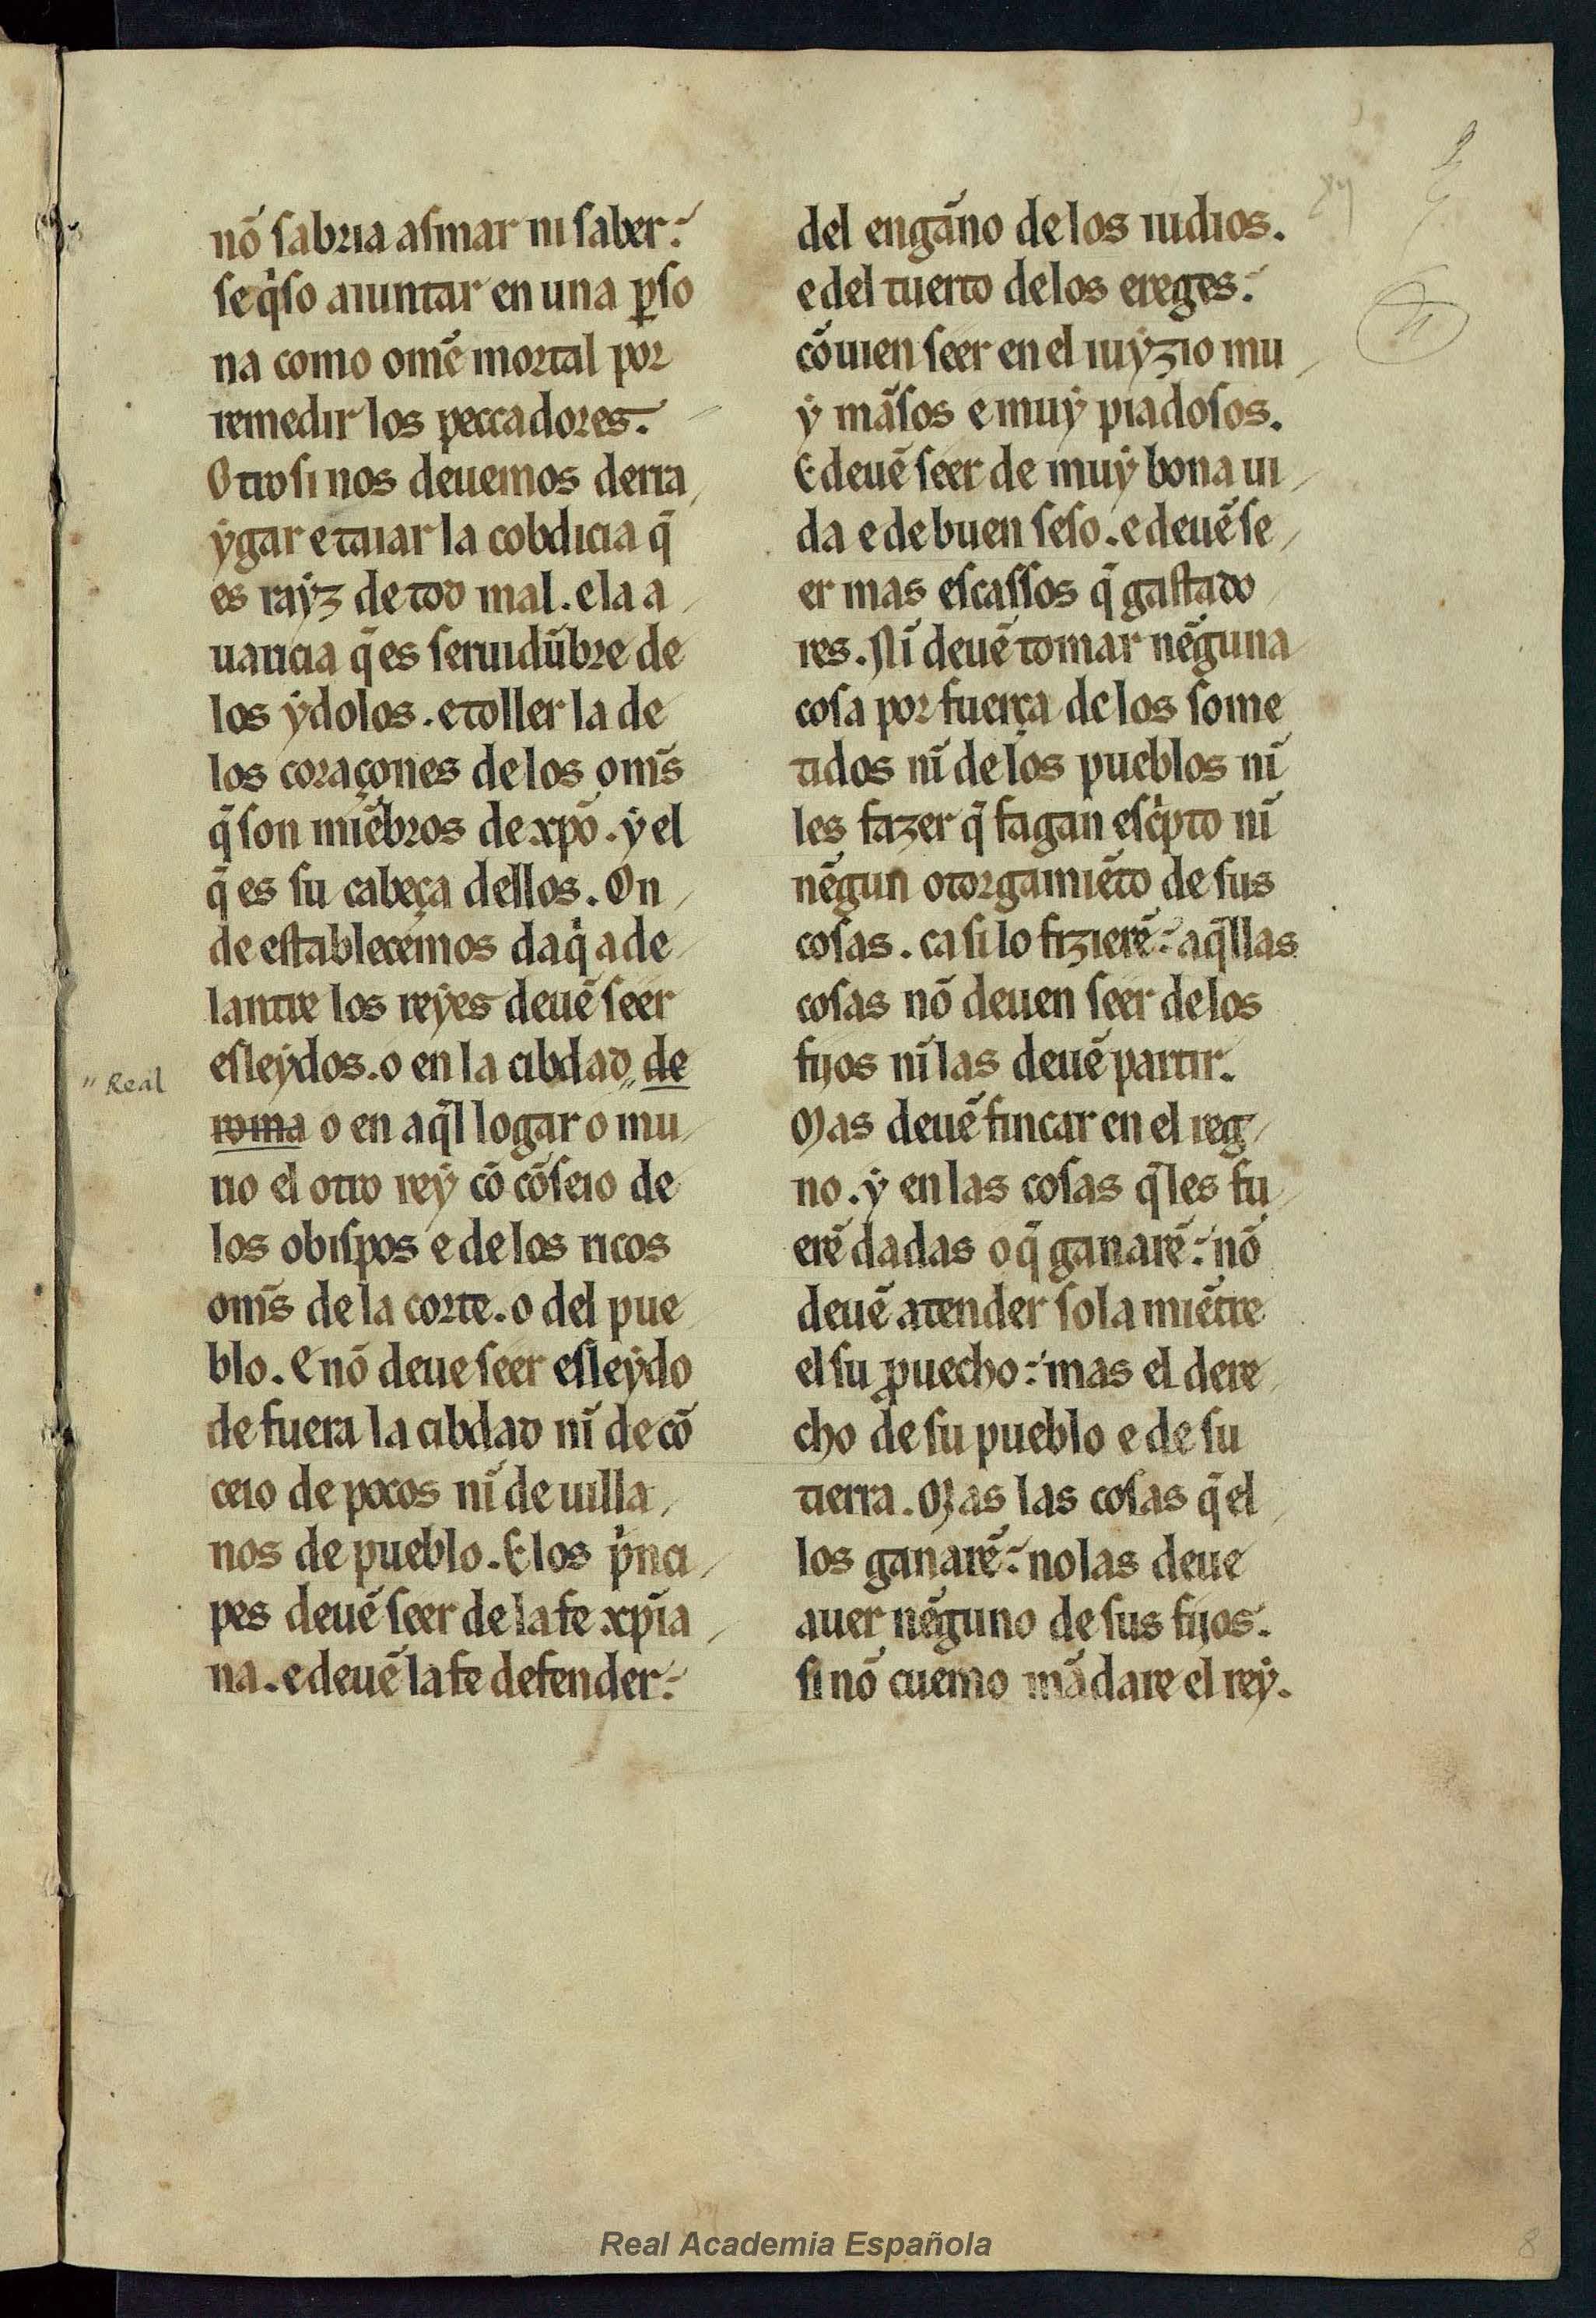 nõ sabria asmar ni saber:
se q̇so aiuntar en una ꝑso
na como omẽ mortal por
remedir los peccadores.
Otrosi nos deuemos derra
ẏgar e taiar la cobdicia q̃
es raẏz de todo mal. e la a
uaricia q̃ es seruidũbre de
los ẏdolos. e toller la de
los coraçones de los om̃s
q̃ son miẽbros de xp̃o. ẏ el
q̃ es su cabeça dellos. On
de establecemos daq̇ ade
lantre los reẏes deuẽ seer
esleẏdos. o en la cibdad de
roma o en aq̃l logar o mu
rio el otro reẏ cõ cõseio de
los obispos e de los ricos
om̃s de la corte. o del pue
blo. E nõ deue seer esleẏdo
de fuera la cibdad nĩ de cõ
ceio de pocos nĩ de uilla
nos de pueblo. E los p̍nci
pes deuẽ seer de la fe xp̃ia
na. e deuẽ la fe defender:
"Real
del engãno de los iudios.
e del tuerto de los ereges:
cõuien seer en el iuẏzio mu
ẏ mãsos e muẏ piadosos.
E deuẽ seer de muẏ bona ui
da e de buen seso. e deuẽ se
er mas escassos q̃ gastado
res. Nĩ deuẽ tomar nẽguna
cosa por fuerça de los some
tidos nĩ de los pueblos nĩ
les fazer q̃ fagan esc̍pto nĩ
nẽgun otorgamiẽto de sus
cosas. ca si lo fizierẽ: aq̃llas
cosas nõ deuen seer de los
fijos nĩ las deuẽ partir.
Mas deuẽ fincar en el reg
no. ẏ en las cosas q̃ les fu
erẽ dadas o q̃ ganarẽ: nõ
deuẽ atender sola miẽtre
el su ꝓuecho: mas el dere
cho de su pueblo e de su
tierra. Mas las cosas q̃ el
los ganarẽ: no las deue
auer nẽguno de sus fijos.
si nõ cuemo mãdare el reẏ.
Real Academia Española
8